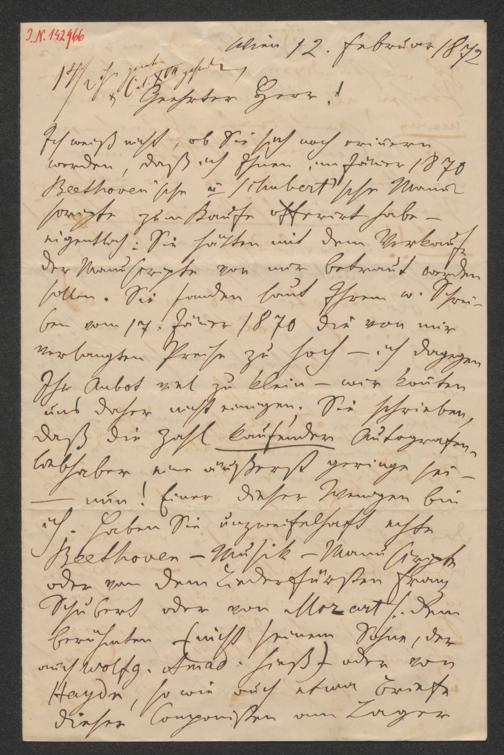 I.N. 142966
Wien 12. Februar 1872
Geehrter Herr!
Ich weiß nicht, ob Sie sich noch erinern
werden, daß ich Ihnen im Jäner 1870
Beethoven'sche u Schubert'sche Manu-
scripte zum Kaufe offerirt habe –
eigentlich: Sie hätten mit dem Verkaufe
der Manuscripte von mir betraut werden
sollen. Sie fanden laut Ihrem w. Schrei-
ben vom 17. Jäner 1870 die von mir
verlangten Preise zu hoch – ich dagegen
Ihr Anbot viel zu klein – wir konten
uns daher nicht einigen. Sie schrieben,
daß die Zahl kaufender Autografen-
liebhaber eine äußerst geringe sei –
– nun! Einer dieser Wenigen bin
ich. Haben Sie unzweifelhaft echte
Beethoven – Musik – Manuscripte
oder von dem Liederfürsten Franz
Schubert oder von Mozart /: dem
berühmten (nicht seinem Sohne, der
auch Wolfg. Amad. hieß) oder von
Haydn, so wie auch etwa Briefe
dieser Componisten am Lager